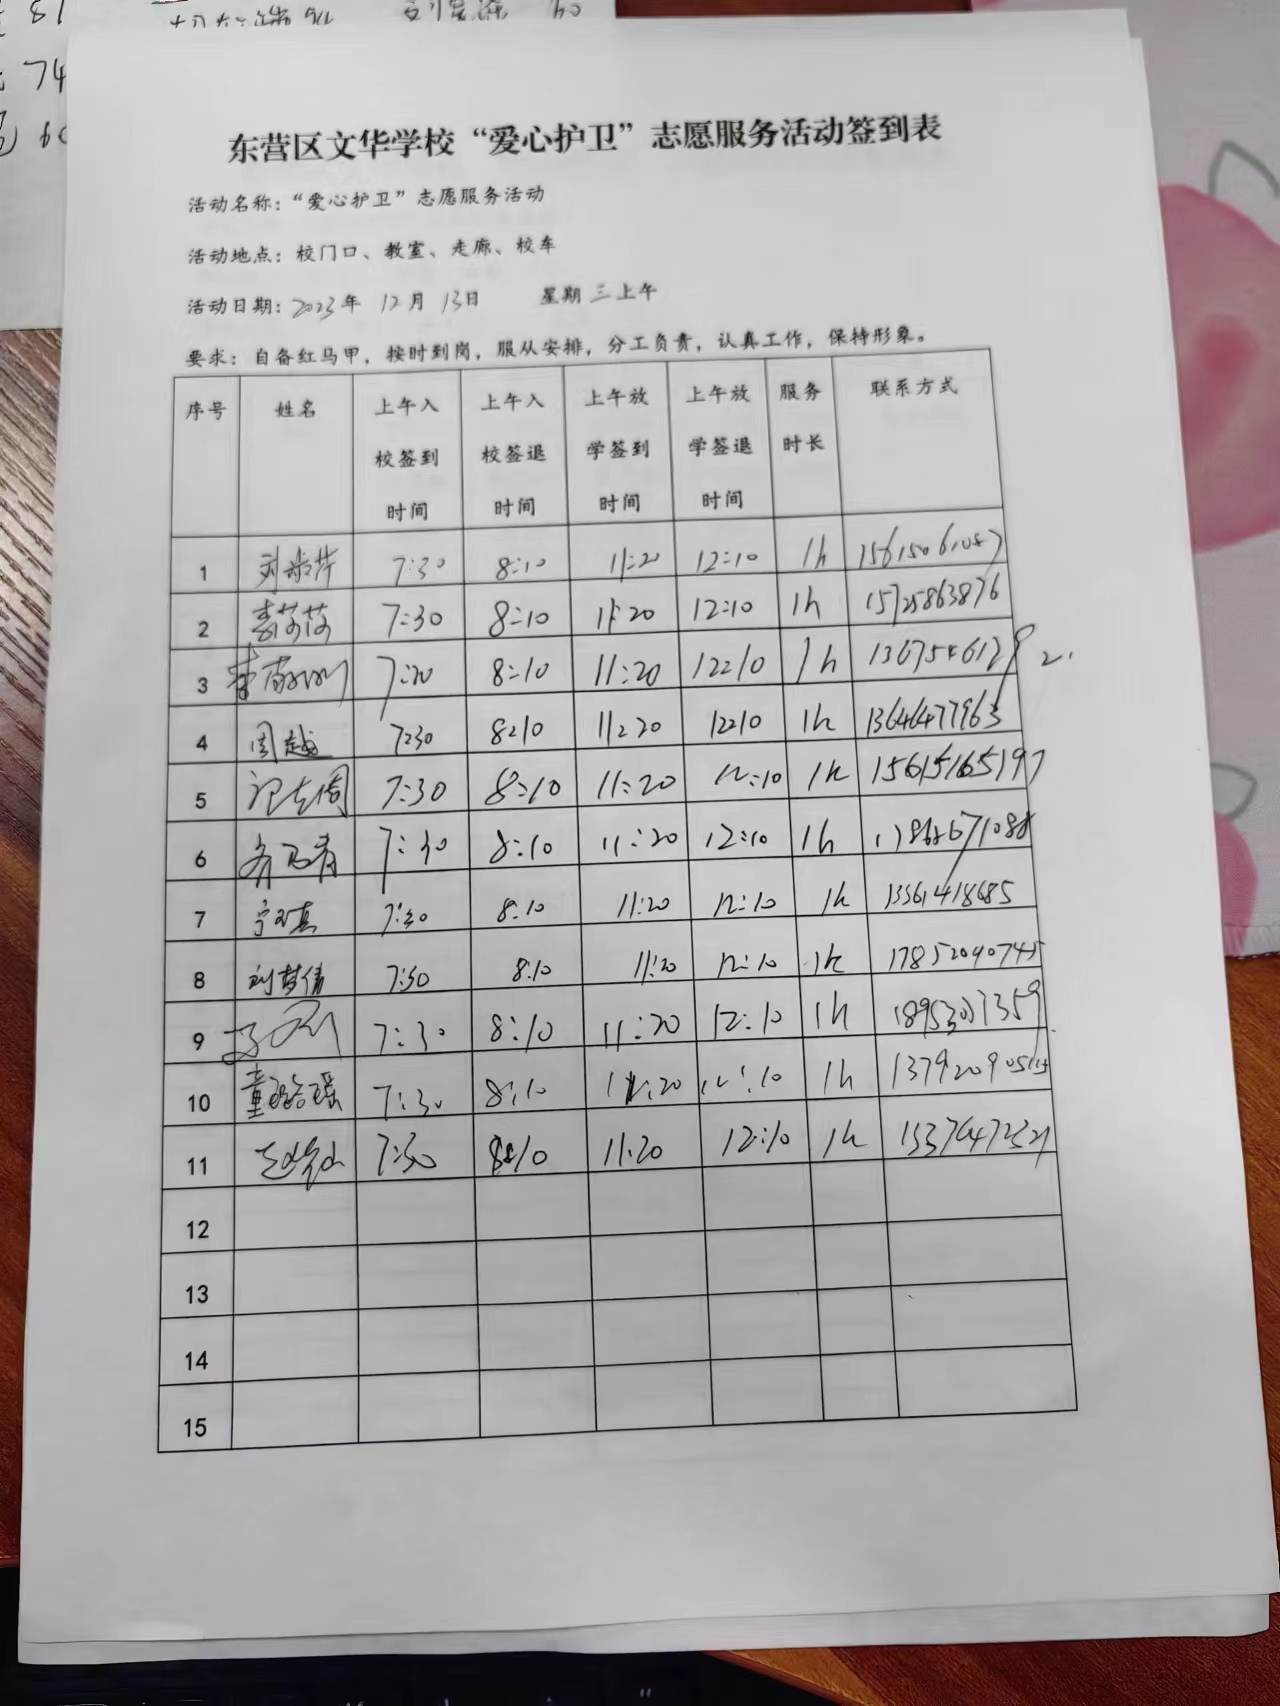 81
74
60
东营区文华学校“爱心护卫”志愿服务活动签到表
活动名称：“爱心护卫”志愿服务活动
活动地点：校门口、教室、走廊、校车
活动日期：2023年 12月 13日 星期三上午
要求：自备红马甲，按时到岗，服从安排，分工负责，认真工作，保持形象。
序号 姓名 上午入校签到时间 上午入校签退时间 上午放学签到时间 上午放学签退时间 服务时长 联系方式
1 7:30 8:10 11:20 12:10 1h
2 7:30 8:10 11:20 12:10 1h 15725863876
3 8:10 11:20 12:10 1h
4 周越 7:30 8:10 11:20 12:10 1h 13646477963
5 7:30 8:10 11:20 12:10 1h 15615165197
6 7:30 8:10 11:20 12:10 1h
7 7:30 8:10 11:20 12:10 1h 13361418685
8 刘梦倩 7:30 8:10 11:20 12:10 1h 17852090745
9 7:30 8:10 11:20 12:10 1h
10 董璐瑶 7:30 8:10 11:20 12:10 1h
11 7:30 8:10 11:20 12:10 1h
12
13
14
15